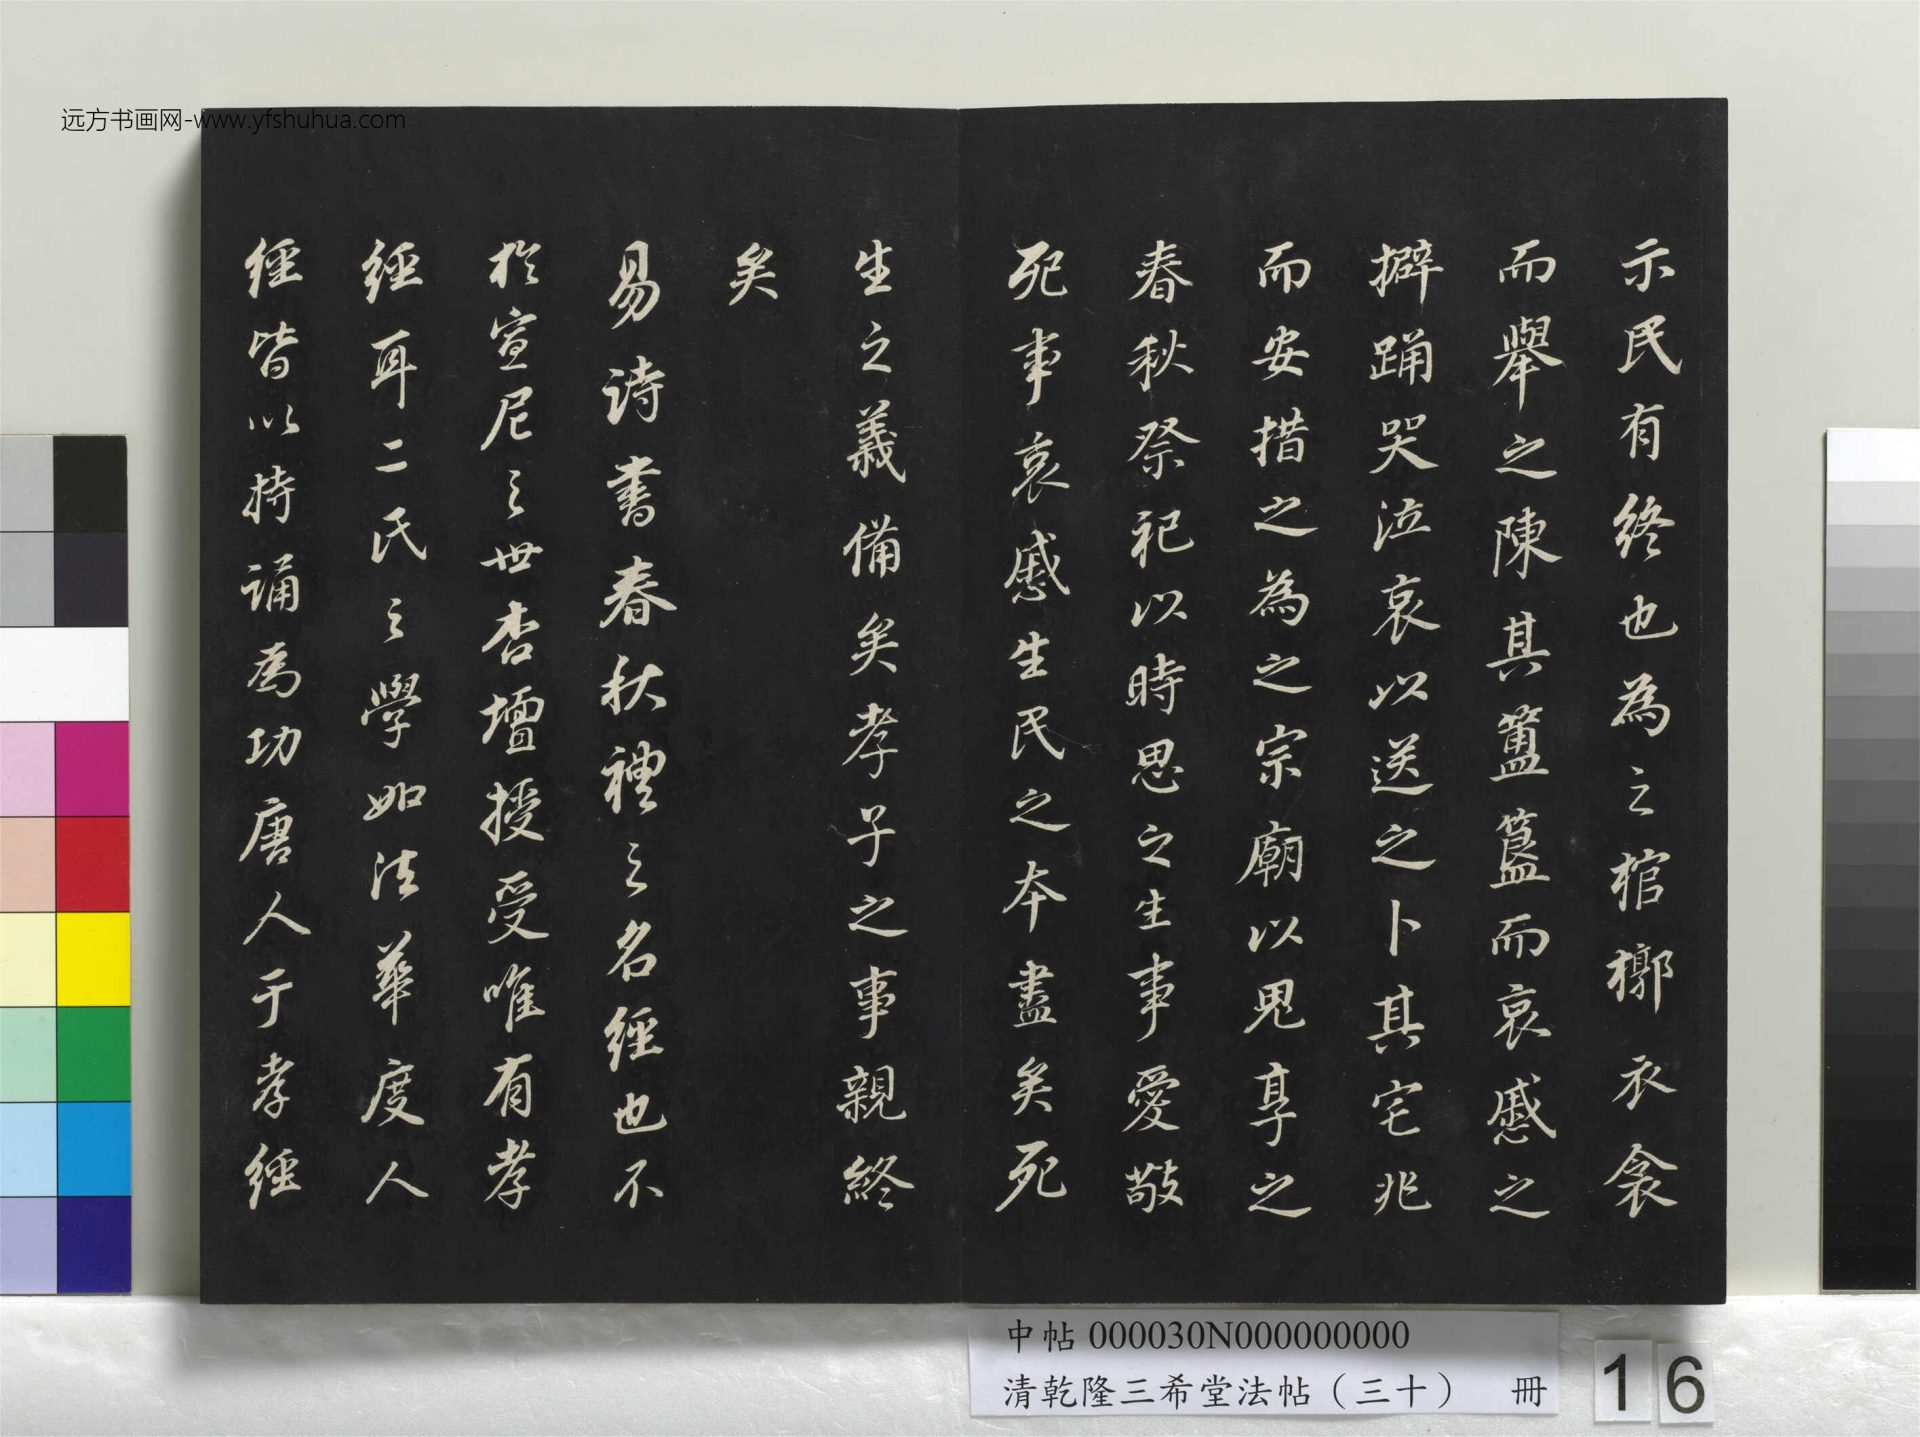 远方书画网-www.yfshuhua.com
示民有終也為之棺槨衣衾
而舉之陳其簠簋而哀慼之
擗踊哭泣哀以送之卜其宅兆
而安措之為之宗廟以鬼享之
春秋祭祀以時思之生事愛敬
死事哀慼生民之本盡矣死
生之義備矣孝子之事親終
矣
易詩書春秋禮之名經也不
於宣尼之世杏壇授受唯有孝
經耳二氏之學如法華度人
經皆以持誦為功唐人于孝經
中帖 000030N000000000
清乾隆三希堂法帖（三十） 冊
16